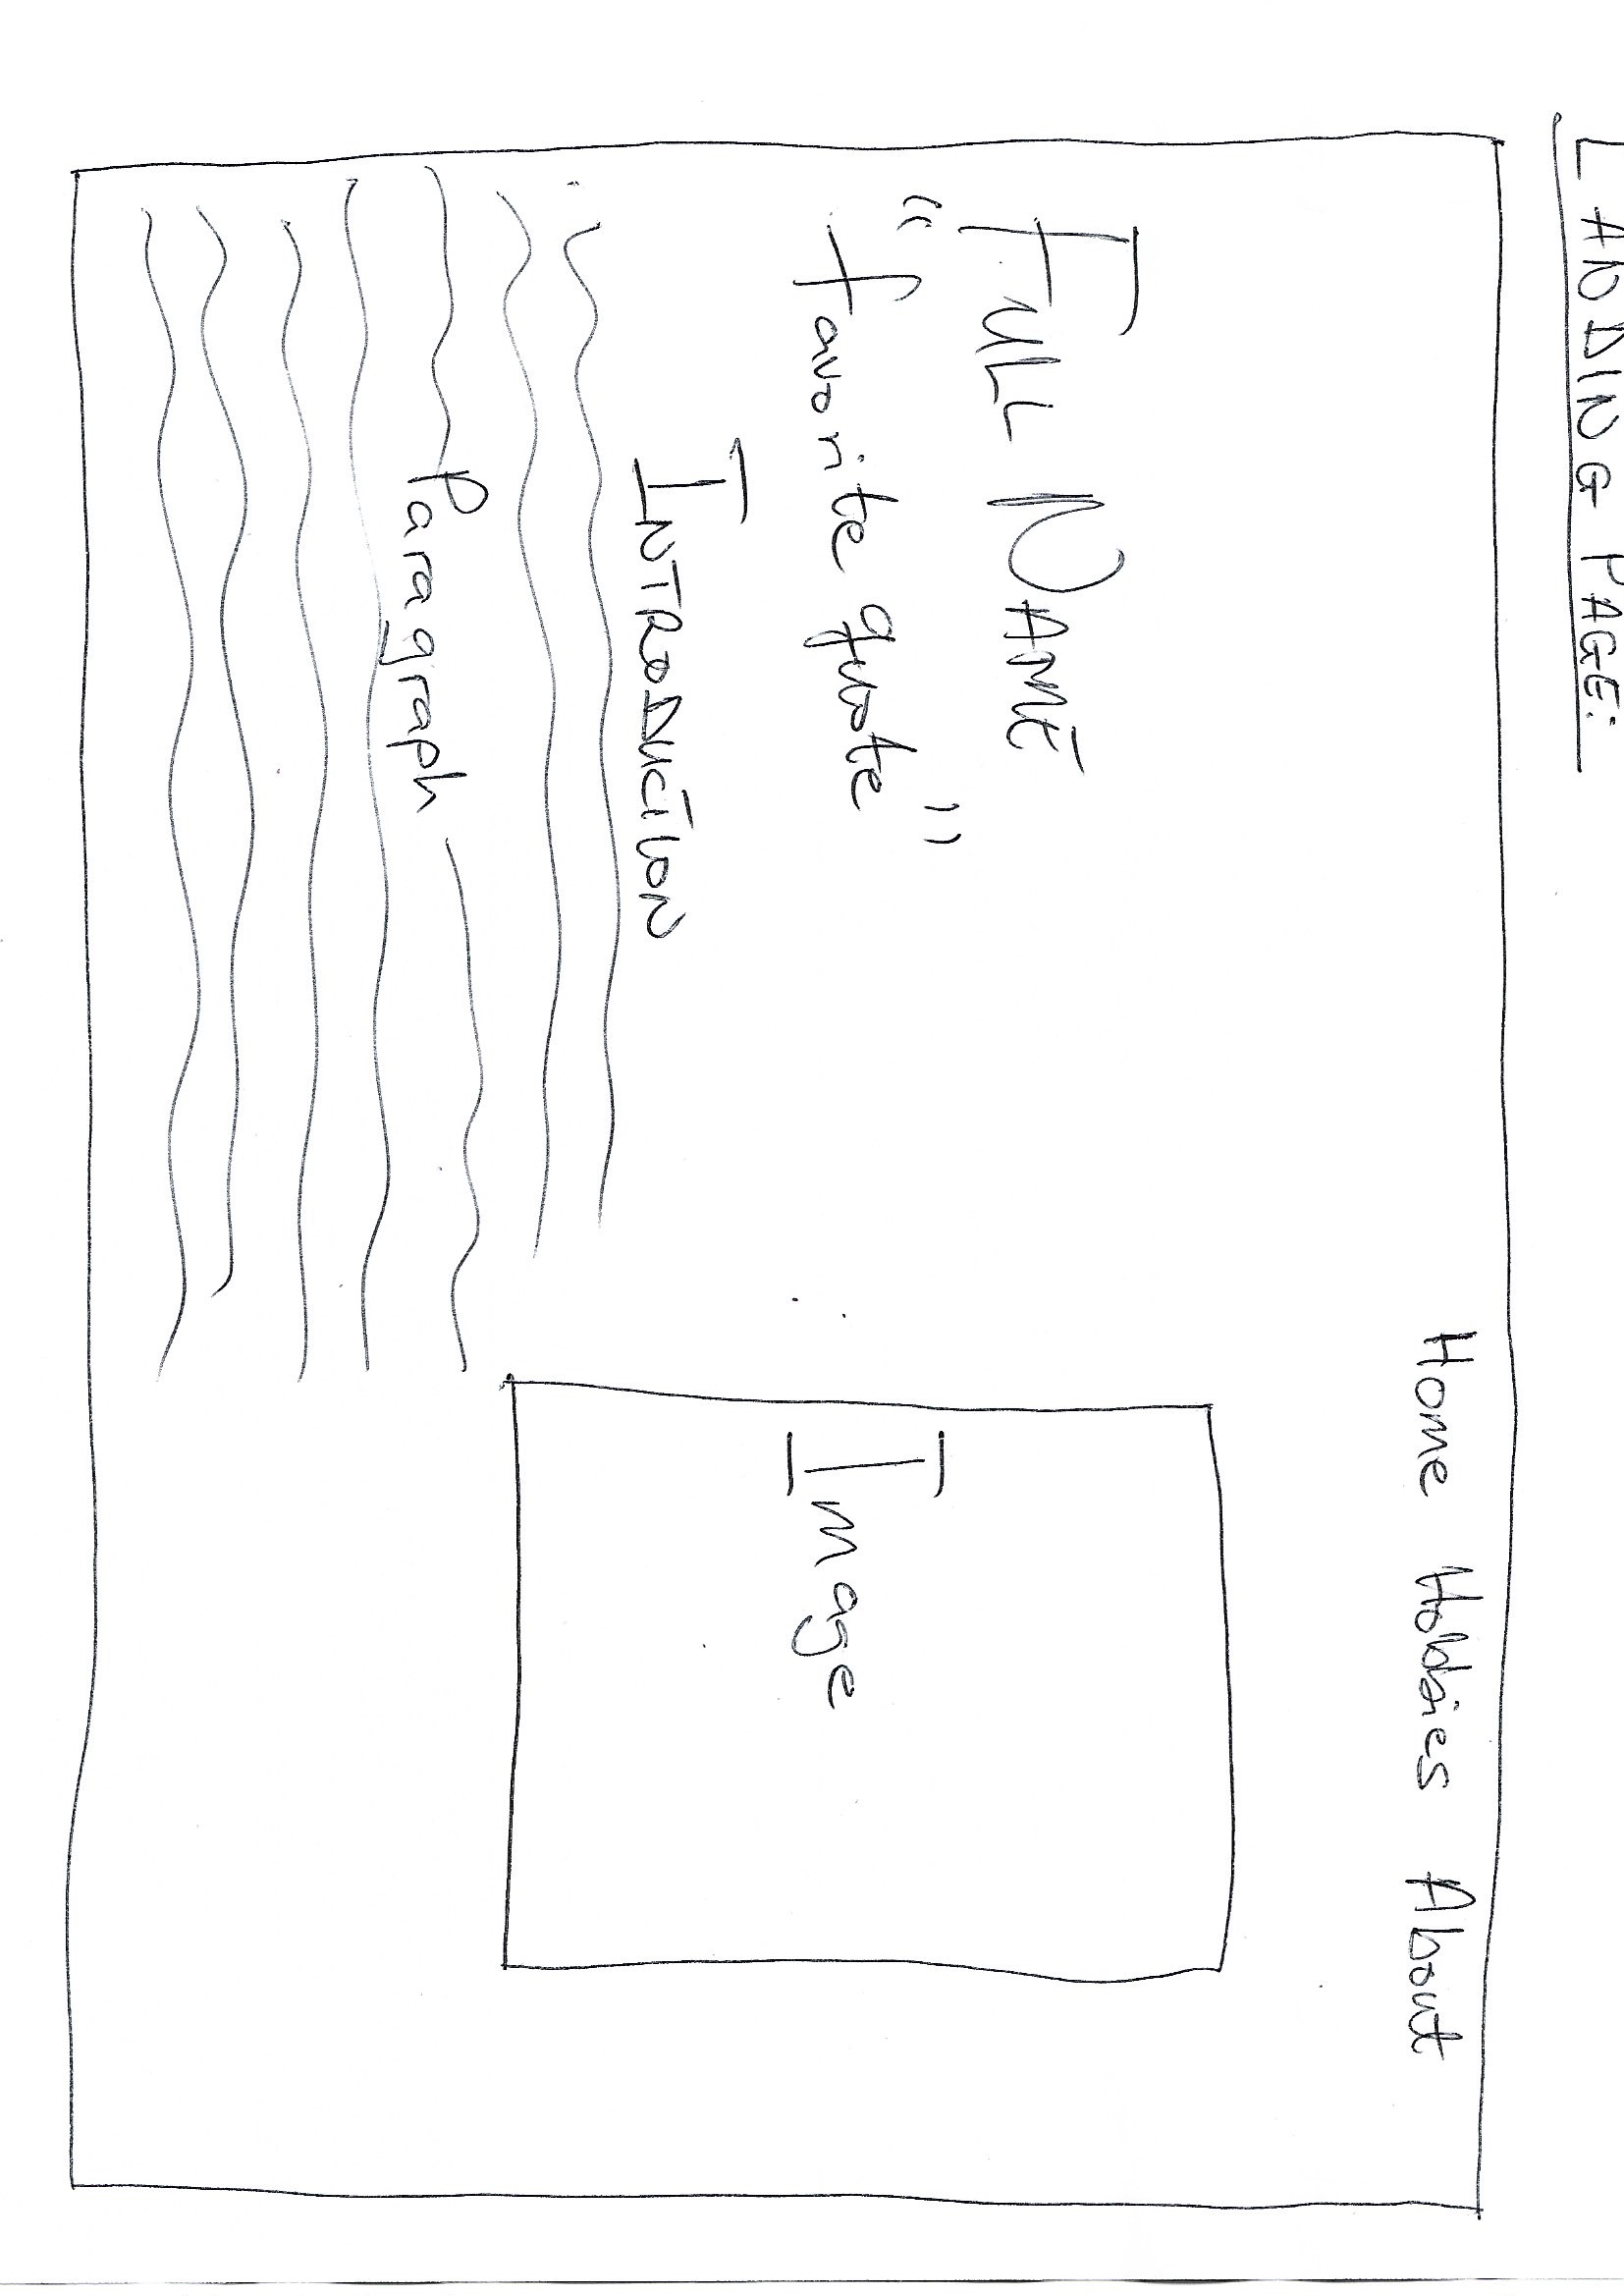 LANDING PAGE:
Home Hobbies About
FULL NAME
"favorite quote"
Image
INTRODUCTION
Paragraph